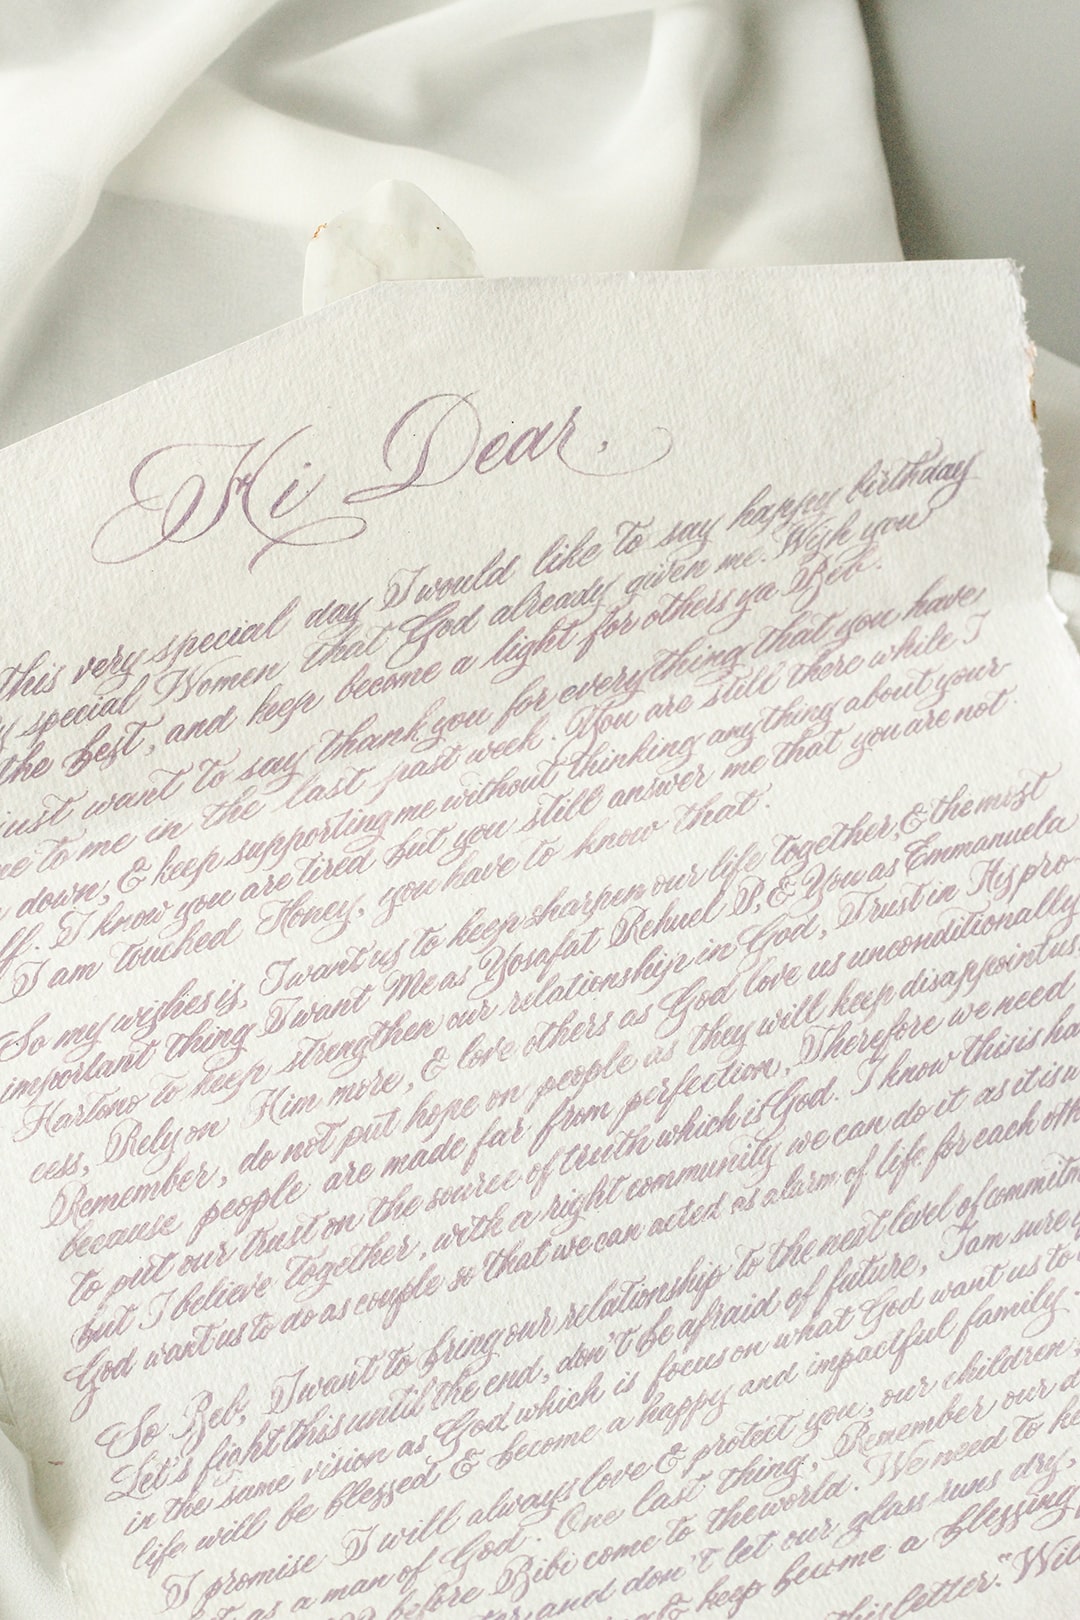 Hi Dear,
this very special day I would like to say happy birthday
special Women that God already given me. Wish you
the best, and keep become a light for others ya Beb.
just want to say thank you for everything that you have
to me in the last past week. You are still there while I
down, & keep supporting me without thinking anything about your-
I know you are tired but you still answer me that you are not.
I am touched Honey, you have to know that.
So my wishes is, I want us to keep sharpen our life together, & the most
important thing I want Me as Yosafat Rehuel P, & You as Emmanuela
Hartono to keep strengthen our relationship in God, Trust in His pro-
cess, Rely on Him more, & love others as God love us unconditionally
Remember, do not put hope on people as they will keep disappoint us,
because people are made far from perfection, Therefore we need
to put our trust on the source of truth which is God. I know this is ha
but I believe together, with a right community we can do it as it is w
God want us to do as couple so that we can acted as alarm of life for each oth
So Beb, I want to bring our relationship to the next level of commitm
Let's fight this until the end, don't be afraid of future, I am sure
in the same vision as God which is focus on what God want us to
life will be blessed & become a happy and impactful family.
I promise I will always love & protect you, our children,
as a man of God. One last thing, Remember our d
before Bibi come to the world. We need to ke
and don't let our glass runs dry,
& keep become a blessing
this letter. "Wil